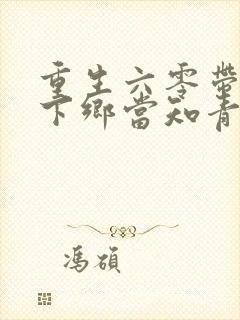 重生六零带
下乡当知青
冯硕